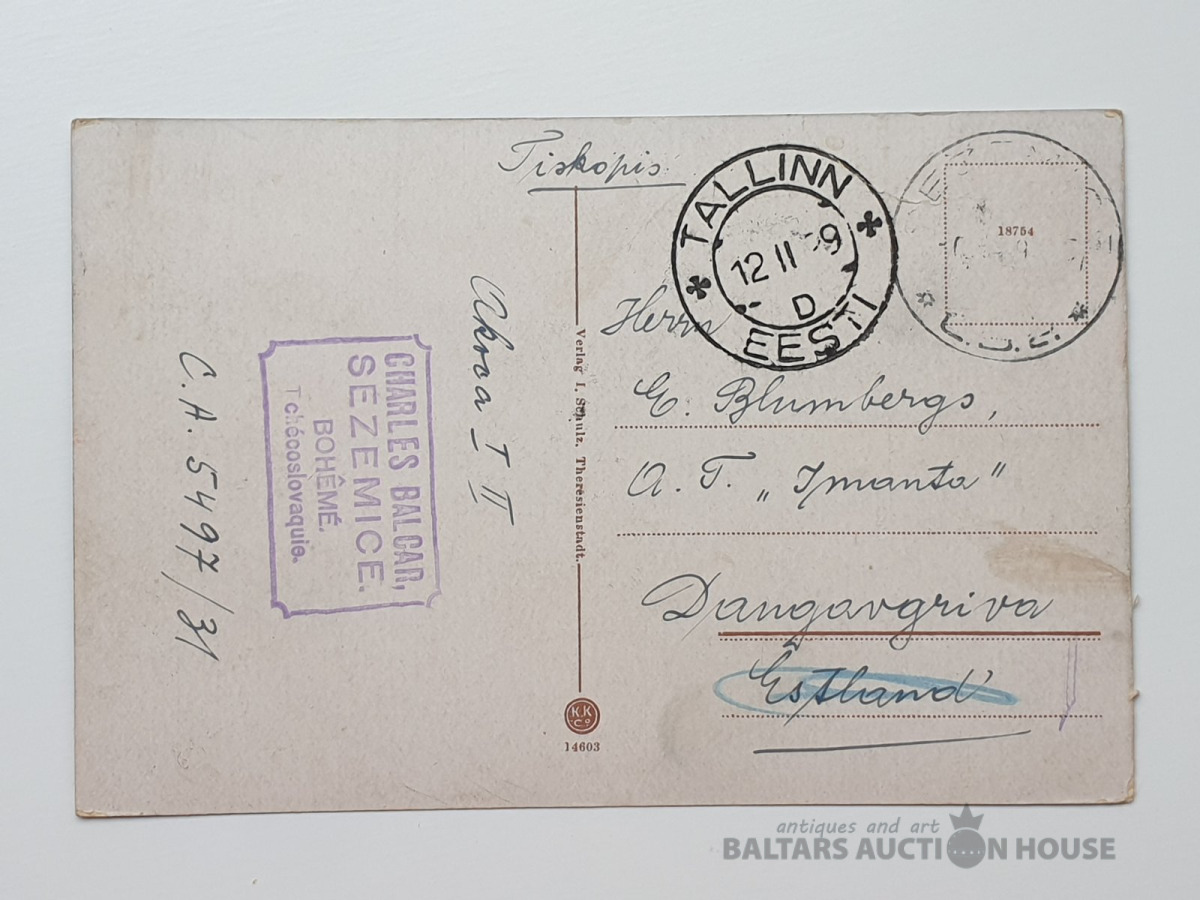 Tiskopis
TALLINN
12 II 9
D
EESTI
18754
Herrn
E. Blumbergs,
A. T. „Imanta"
Dangavgriva
Estland
Verlag I. Schulz, Theresienstadt.
K.K
Co
14603
I II
CHARLES BALCAR,
SEZEMICE.
BOHÊMÉ.
Tchécoslovaquie.
C. A. 5497/31
antiques and art
BALTARS AUCTION HOUSE